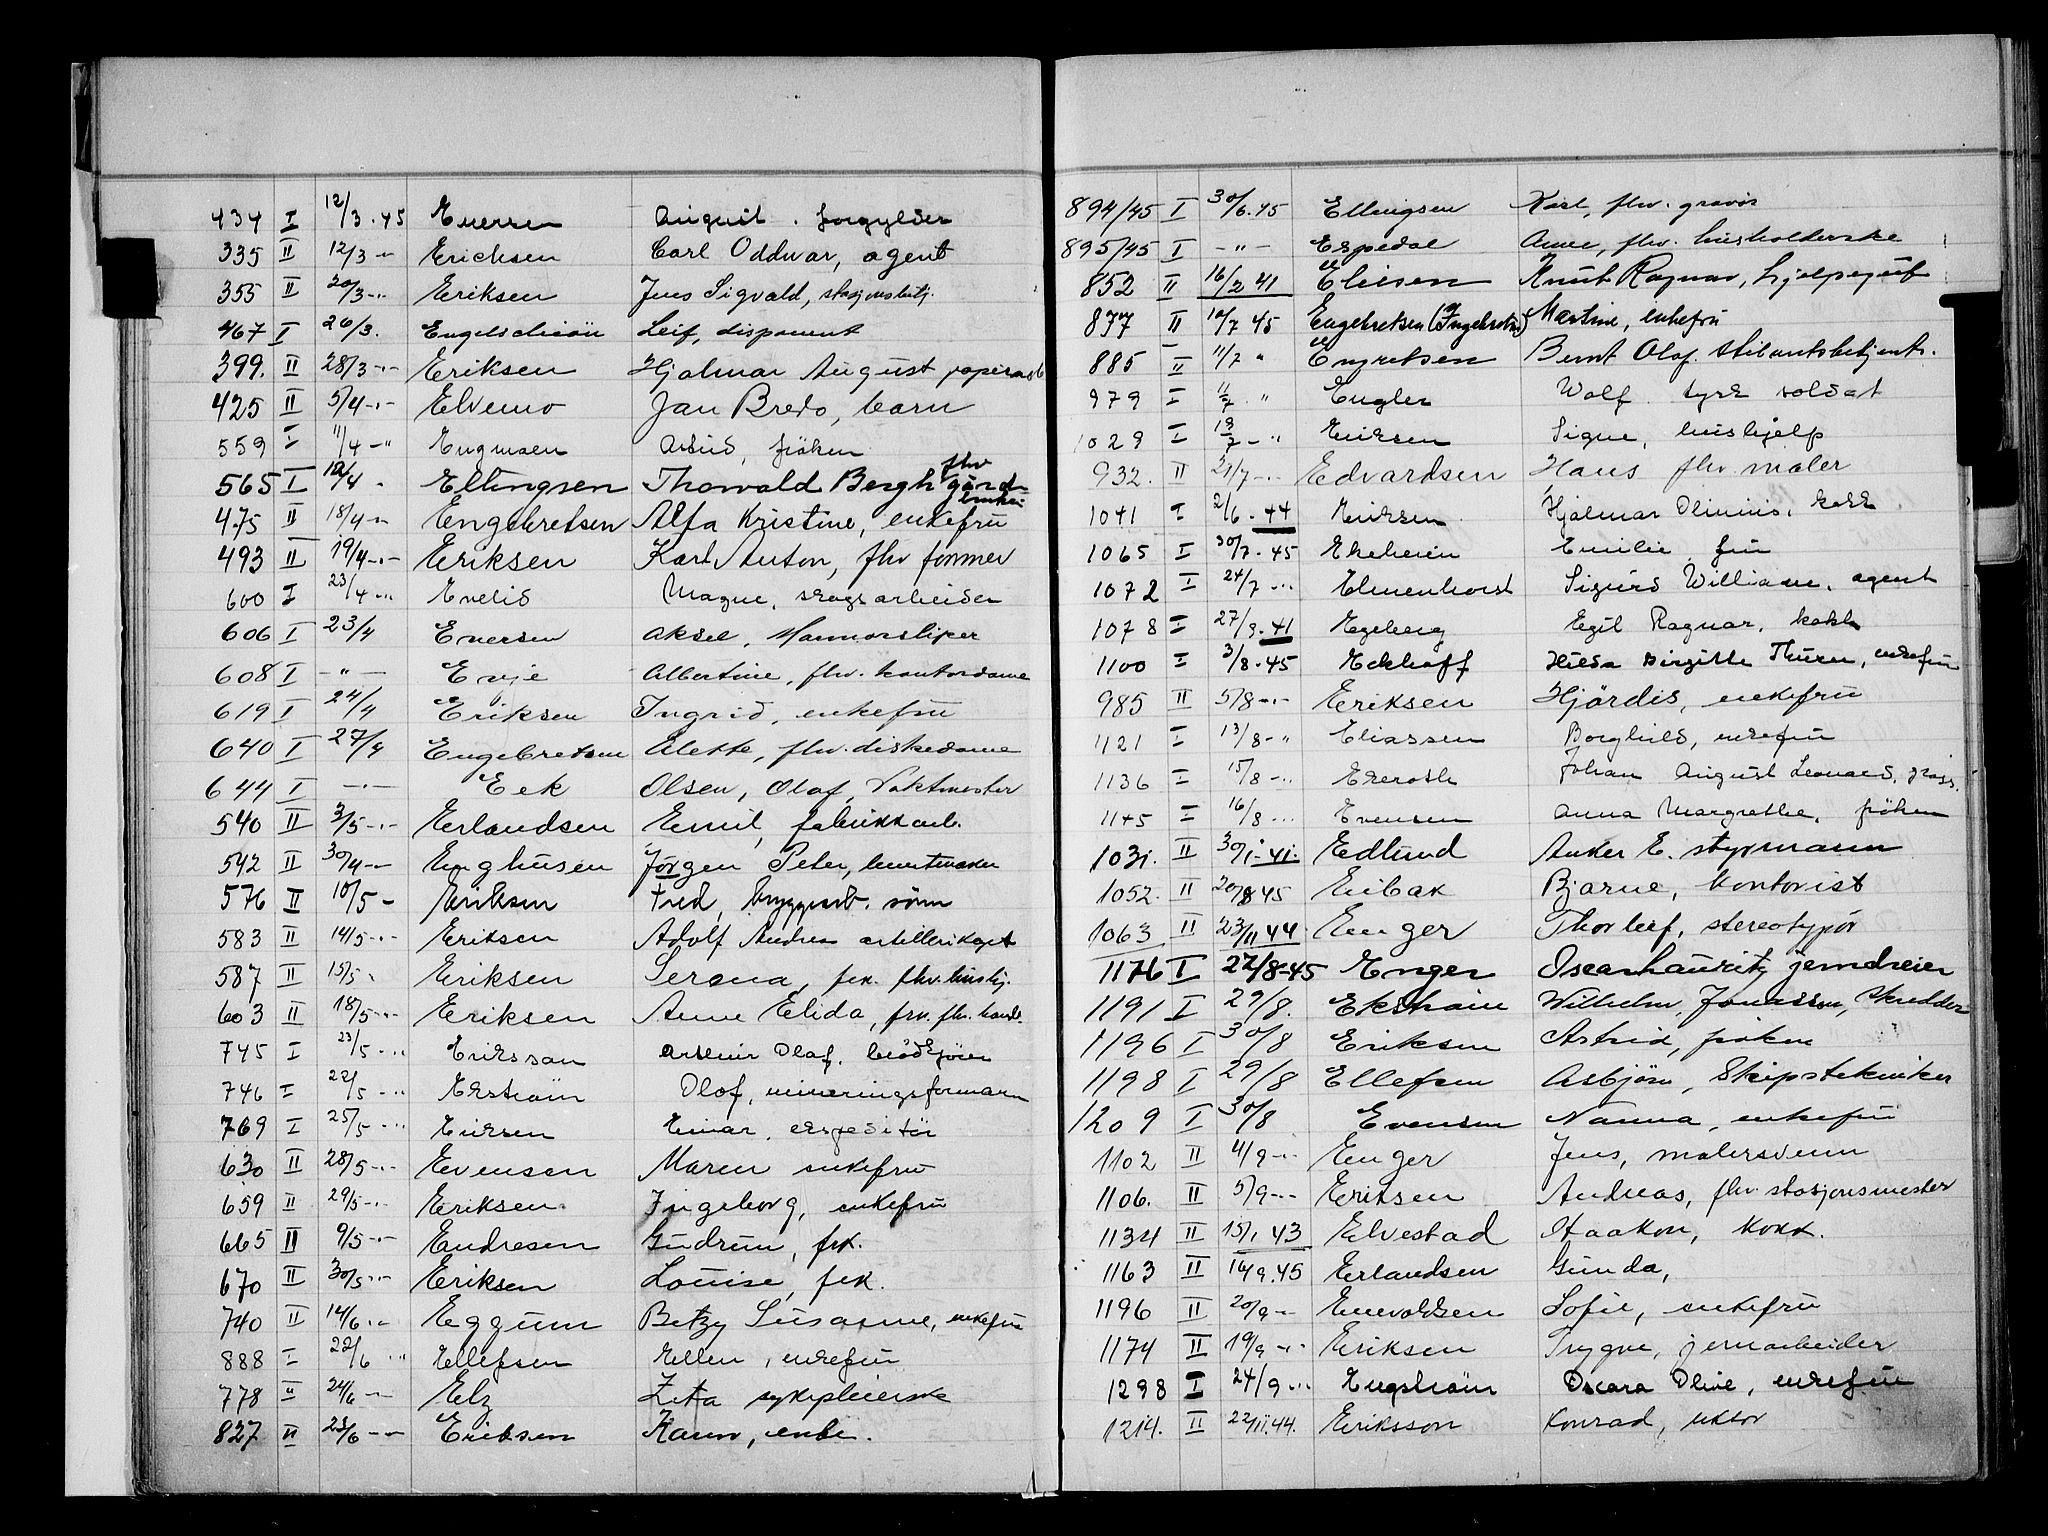 434 I 12/3 . 45 Eversen August . forgylder
335 II 12/3 -"- Erichsen Carl Oddvar, agent
355 II 20/3 -"- Eriksen Jens Sigvald, stasjonsbetj.
467 I 26/3. Engelschiøn Leif, disponent
399. II 28/3 -"- Eriksen Hjalmar August papirarb
425 II 5/4 -"- Elvemo Jan Bredo, barn
559 I 11/4 -" Engmoen Astrid, frøken
565 I 12/4 " Ellingsen Thorvald Bergh flv gårdbruker
475 II 18/4 -"- Engebretsen Alfa Kristine, enkefru
493 II 19/4 -"- Eriksen Karl Anton, flv former
600 I 23/4 -"- Evelid Magne, skogsarbeider
606 I 23/4 Eversen Aksel, Marmorsliper
608 I -"- Evje Albertine, flv. kontordame
619 I 24/4 Eriksen Ingrid, enkefru
640 I 27/4 Engebretsen Alette, flv. diskedame
644 I -"- Eek Olsen, Olaf, Vaktmester
540 II 3/5 -"- Erlandsen Emil, fabrikkarb.
542 II 30/4 -"- Enghusen Jørgen Peter, buntmaker
576 II 10/5 - Eriksen Fred, bryggearb. sønn
583 II 14/5 -"- Eriksen Adolf Andreas artillerikapt
587 II 15/5 " Eriksen Serena, frk. flv. hushj.
603 II 18/5 -"- Eriksen Anne Elida, frv. flv. handl.
745 I 23/5 -"- Eriksson Artur Olaf, brødkjører
746 I 22/5 -"- Ekström Olof, mineringsformann
769 I 25/5 -"- Eriksen Einar, ekspeditør
630 II 28/5 -"- Evensen Maren enkefru
659 II 29/5 -"- Eriksen Ingeborg, enkefru
665 II 9/5 -"- Endresen Gudrun, frk.
670 II 30/5 -"- Eriksen Louise, frk.
740 II 14/6 -"- Eggum Betzy Susanne, enkefru
888 I 22/6 -"- Ellefsen Ellen, enkefru
778 II 24/6 -"- Elz Zeta sykepleierske
827 II 23/6 -"- Eriksen Karen, enke.
894/45 I 30/6.45 Ellingsen Karl, flv. gravør
895/45 I -"- Espedal Anne, flv. husholderske
852 II 16/2 41 Eliesen Knut Ragnar, hjelpegut
877 II 10/7 45 Engebretsen (Ingebretsen) Martine, enkefru
885 II 11/7 " Engretsen Bernt Olaf. stilantsbetjent.
979 I 11/7 " Engler Wolf tysk soldat
1029 I 19/7 -" Eriksen Signe, hushjelp
932. II 21/7 -"- Edvardsen Hans flv. maler
1041 I 2/6 . 44 Eriksen Hjalmar Olinius, kokk
1065 I 30/7 . 45 Ekeheim Emilie fru
1072 I 24/7 -"- Elmenhorst Sigurd William, agent
1078 I 27/9 . 41 Egeberg Egil Ragnar, kokk
1100 I 3/8 . 45 Eckhoff Hilda Birgitte Thuren, enkefru
985 II 5/8 -"- Eriksen Hjørdis, enkefru
1121 I 13/8 -" Eliassen Borghild, enkefru
1136 I 15/8 -"- Ekeroth Johan August Leonard,
1145 I 16/8 -"- Evensen Anna Margrethe, frøken
1031. II 30/1 . 41. Edlund Anker E. styrmann
1052. II 20/8 45 Eibak Bjarne, kontorist
1063 II 23/11 44 Enger Thorleif, stereotypør
1176 I 27/8-45 Enger Oscar Lauritz jerndreier
1191 I 29/8. Ekstrøm Wilhelm, Jonassen, skredder
1196 I 30/8 Eriksen Astrid, frøken
1198 I 29/8 Ellefsen Asbjørn, Skipstekniker
1209 I 30/8 Evensen Nanna, enkefru
1102 II 4/9 -"- Enger Jens, malersvenn
1106. II 5/9 -"- Eriksen Andreas, flv. stasjonsmester
1134 II 15/1 43 Elvestad Haakon, kokk.
1163 II 14/9.45 Erlandsen Gunda,
1196 II 20/9 -"- Enevoldsen Sofie, enkefru
1174 II 19/9 -"- Eriksen Trygve, jernarbeider
1298 I 24/9 -"- Engstrøm Oscara Olive, enkefru
1214. II 22/11.44. Eriksson Konrad, rektor